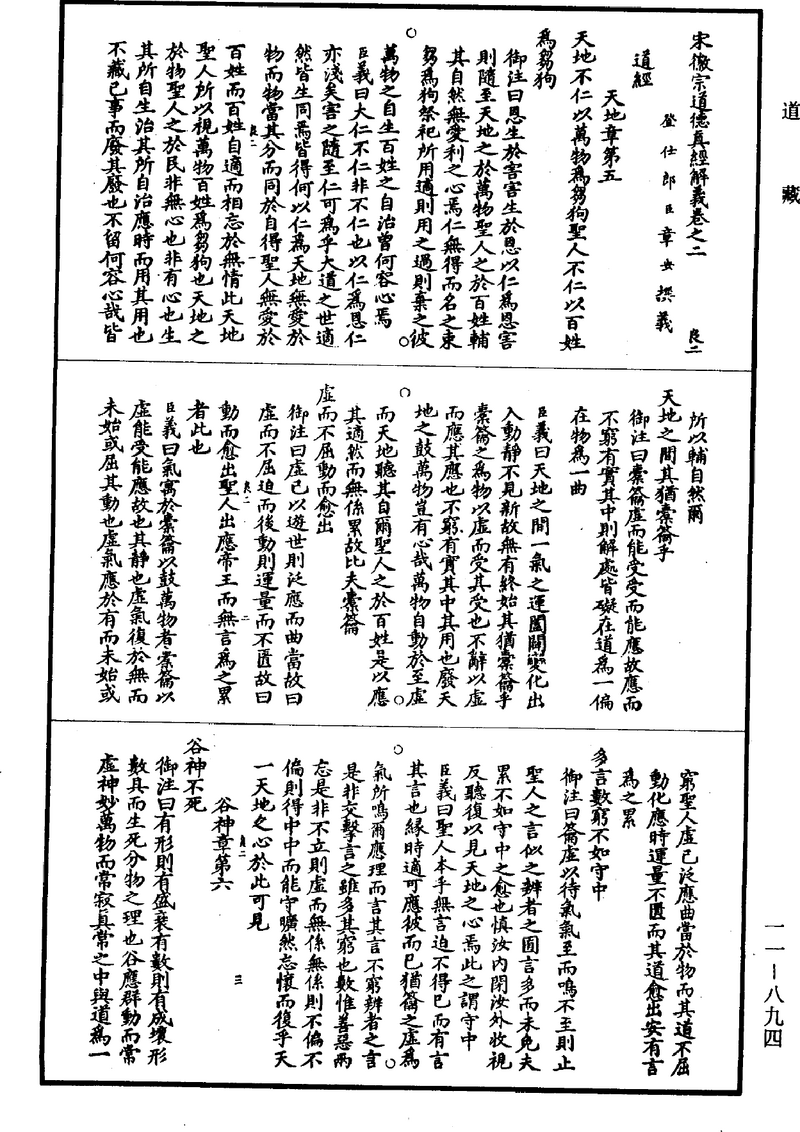 道藏
宋徽宗道德真經解義卷之二
良二
登仕郎臣章安撰義
道經
天地章第五
天地不仁以萬物為芻狗聖人不仁以百姓
為芻狗
御注曰恩生於害害生於恩以仁為恩害
則隨至天地之於萬物聖人之於百姓輔
其自然無愛利之心焉仁無得而名之束
芻為狗祭祀所用適則用之過則棄之彼
萬物之自生百姓之自治曾何容心焉
臣義曰大仁不仁非不仁也以仁為恩仁
亦淺矣害之隨至仁可為乎大道之世適
然皆生同焉皆得何以仁為天地無愛於
物而物當其分而同於自得聖人無愛於
良二
一
百姓而百姓自適而相忘於無情此天地
聖人所以視萬物百姓為芻狗也天地之
於物聖人之於民非無心也非有心也生
其所自生治其所自治應時而用其用也
不藏已事而廢其廢也不留何容心哉皆
所以輔自然爾
天地之間其猶橐籥乎
御注曰橐籥虛而能受受而能應故應而
不窮有實其中則解處皆礙在道為一偏
在物為一曲
臣義曰天地之間一氣之運闔闢變化出
入動靜不見新故無有終始其猶橐籥乎
橐籥之為物以虛而受其受也不辭以虛
而應其應也不窮有實其中其用也廢天
地之鼓萬物豈有心哉萬物自動於至虛
而天地聽其自爾聖人之於百姓是以應
其適然而無係累故比夫橐籥
虛而不屈動而愈出
御注曰虛已以遊世則泛應而曲當故曰
虛而不屈迫而後動則運量而不匱故曰
良二
二
動而愈出聖人出應帝王而無言為之累
者此也
臣義曰氣寓於橐籥以鼓萬物者橐籥以
虛能受能應故也其靜也虛氣復於無而
未始或屈其動也虛氣應於有而未始或
窮聖人虛已泛應曲當於物而其道不屈
動化應時運量不匱而其道愈出安有言
為之累
多言數窮不如守中
御注曰籥虛以待氣氣至而鳴不至則止
聖人之言似之辨者之囿言多而未免夫
累不如守中之愈也慎汝內閉汝外收視
反聽復以見天地之心焉此之謂守中
臣義曰聖人本乎無言迫不得已而有言
其言也緣時適可應彼而已猶籥之虛為
氣所鳴爾應理而言其言不窮辨者之言
是非交擊言之雖多其窮也數惟善惡兩
忘是非不立則虛而無係無係則不偏不
偏則得中中而能守曠然忘懷而復乎天
一天地之心於此可見
良二
三
谷神章第六
谷神不死
御注曰有形則有盛衰有數則有成壞形
數具而生死分物之理也谷應群動而常
虛神妙萬物而常寂真常之中與道為一
一一－八九四